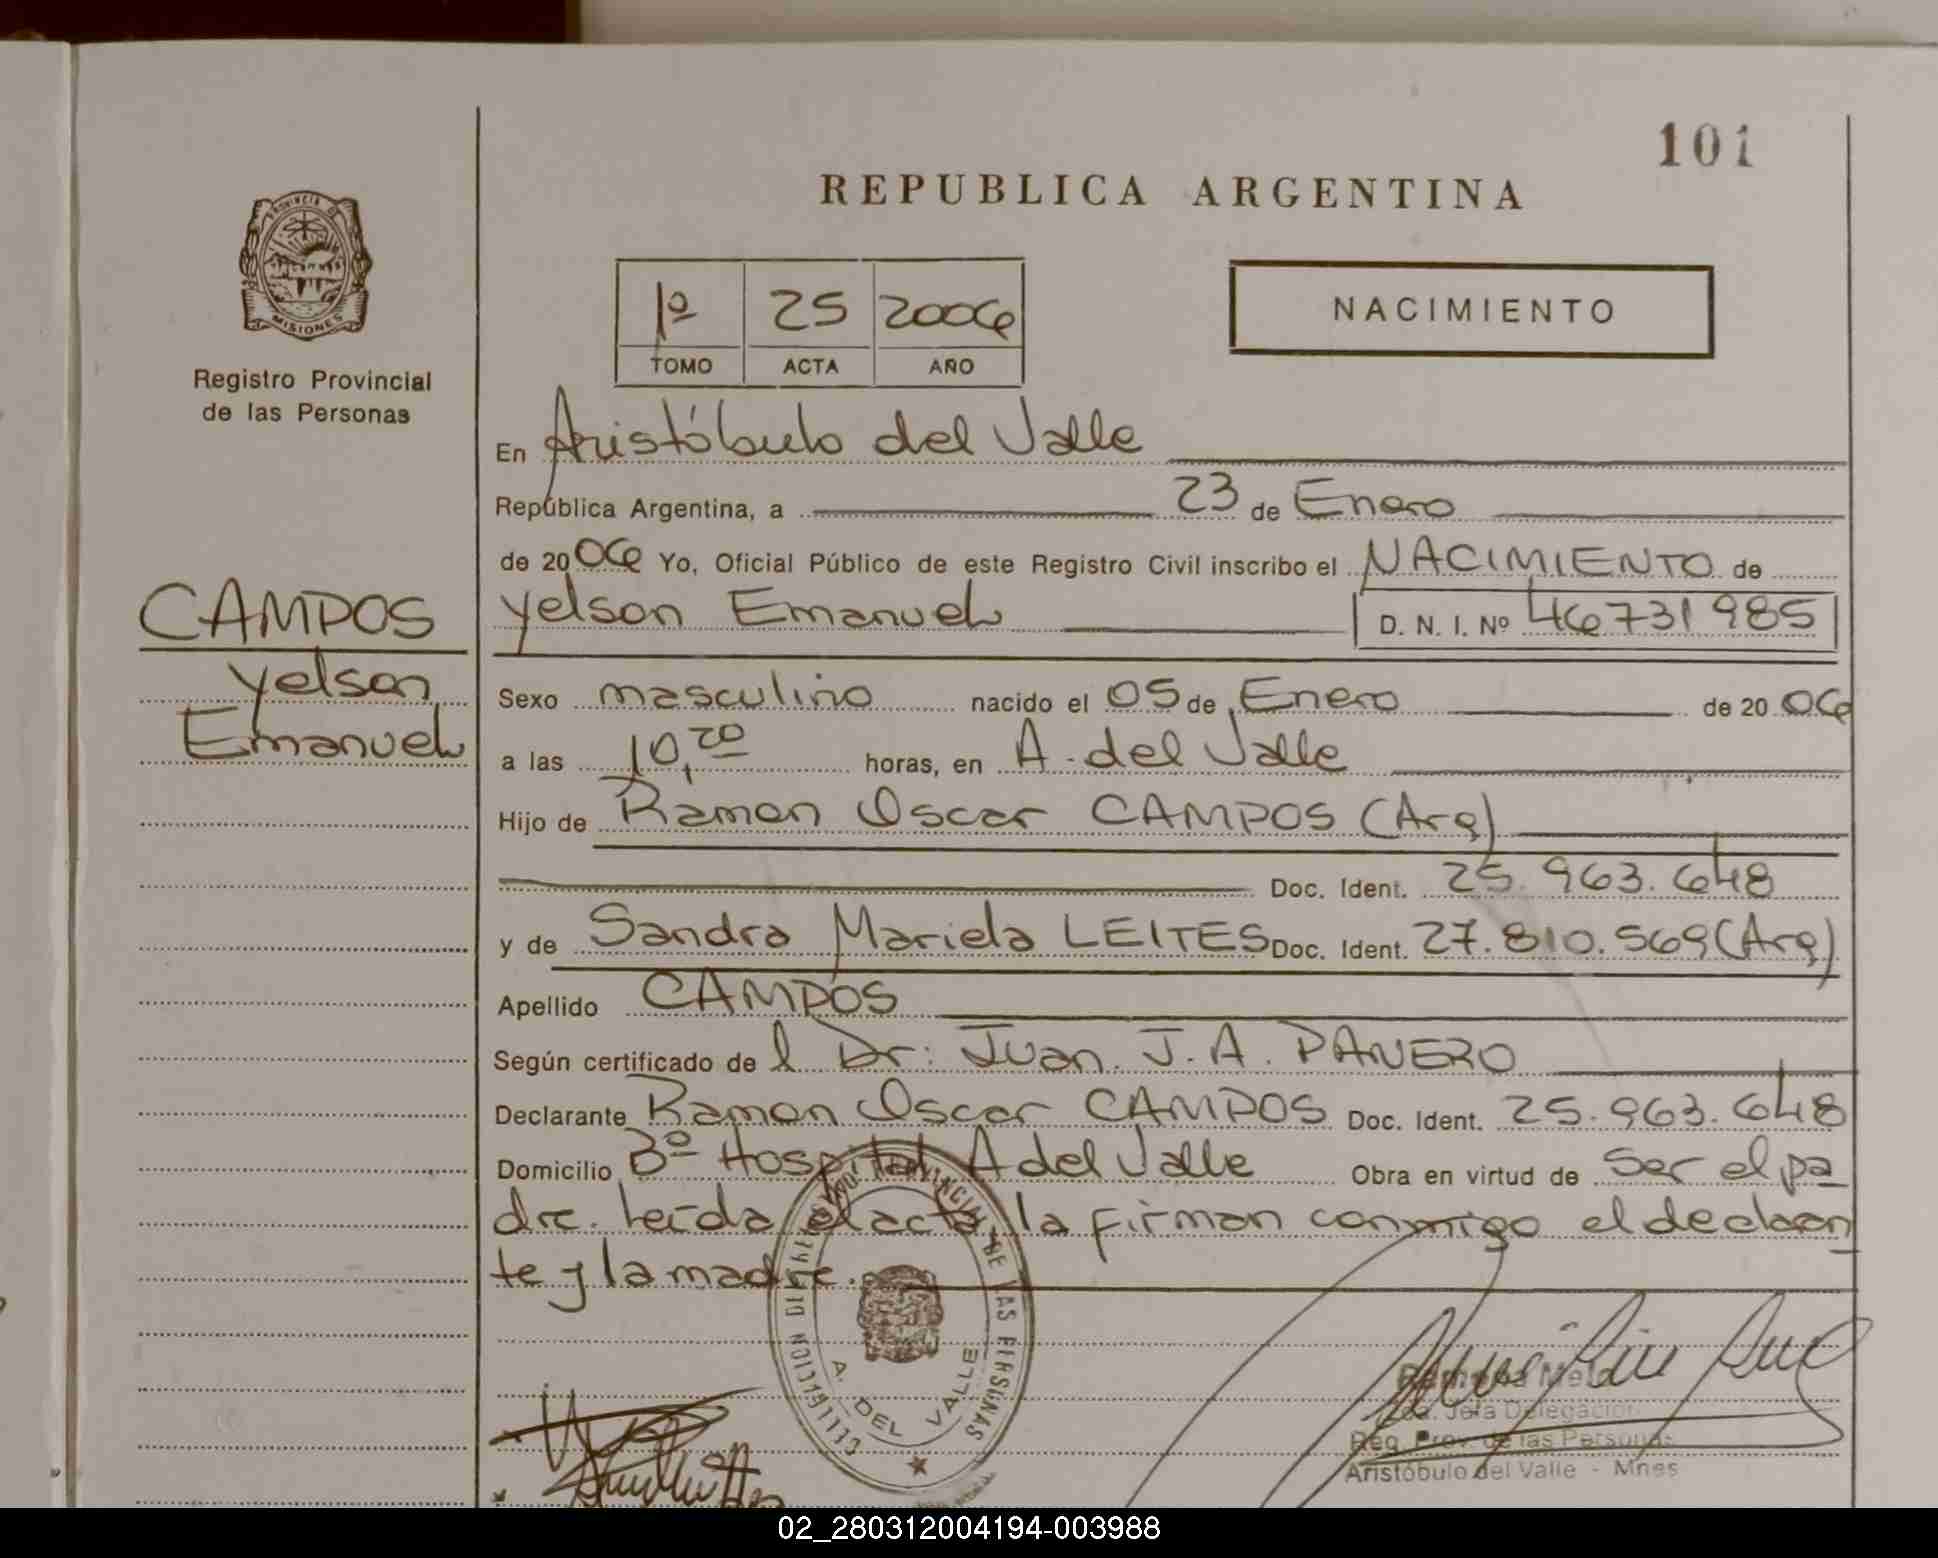 101
REPUBLICA ARGENTINA
PROVINCIA DE
MISIONES
Registro Provincial
de las Personas
1º 25 2006
TOMO ACTA AÑO
NACIMIENTO
En Aristóbulo del Valle
República Argentina, a 23 de Enero
de 2006 Yo, Oficial Público de este Registro Civil inscribo el NACIMIENTO de
Yelson Emanuel D. N. I. Nº 46731985
CAMPOS
Yelson
Emanuel
Sexo masculino nacido el 05 de Enero de 2006
a las 10,20 horas, en A. del Valle
Hijo de Ramon Oscar CAMPOS (Arg)
Doc. Ident. 25.963.648
y de Sandra Mariela LEITES Doc. Ident. 27.810.569 (Arg)
Apellido CAMPOS
Según certificado de l Dr: Juan. J. A. PANERO
Declarante Ramon Oscar CAMPOS Doc. Ident. 25.963.648
Domicilio Bº Hospital A del Valle Obra en virtud de ser el pa
dre. Leída el acta, la firman conmigo el declaran
te y la madre.
A. DEL VALLE
DE LAS PERSONAS
Ramona
Jefa Delegación
Reg. Prov. de las Personas
Aristóbulo del Valle - Mnes
02_280312004194-003988